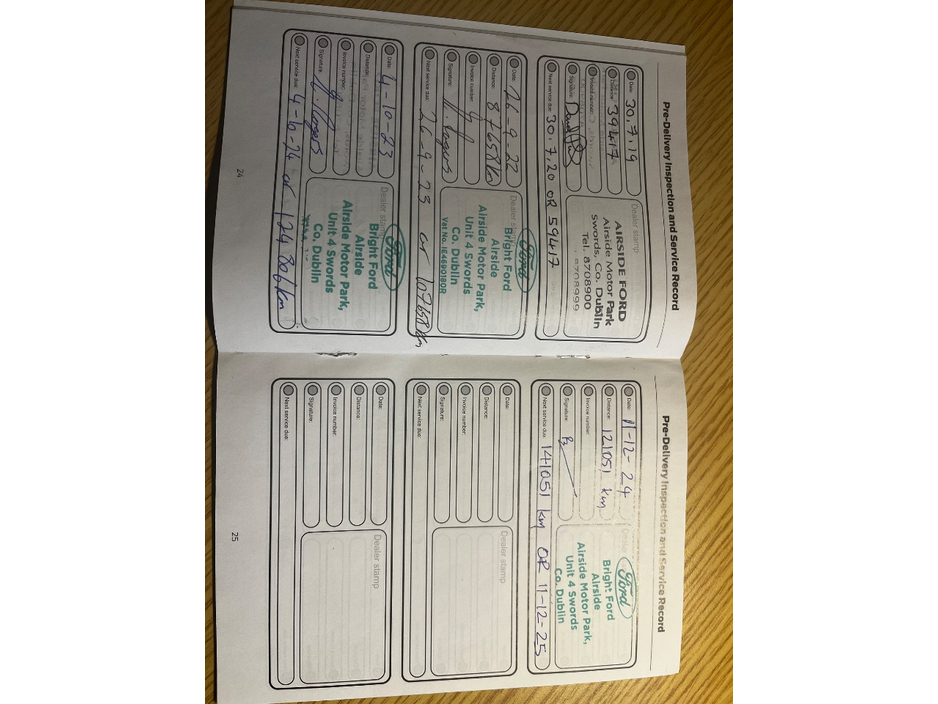 Pre-Delivery Inspection and Service Record
Date: 30.7.19
Distance: 39417
Invoice number:
Signature:
Next service due: 30.7.20 OR 59417
Dealer stamp
AIRSIDE FORD
Airside Motor Park
Swords, Co. Dublin
Tel. 8708900
8708999
Date: 26-9-22
Distance: 87658km
Invoice number:
Signature:
Next service due: 26-9-23 or 107658km
Dealer stamp
Ford
Bright Ford
Airside
Airside Motor Park,
Unit 4 Swords
Co. Dublin
Vat No. IE4690180R
Date: 4-10-23
Distance:
Invoice number:
Signature:
Next service due: 4-10-24 or 124806km
Dealer stamp
Ford
Bright Ford
Airside
Airside Motor Park,
Unit 4 Swords
Co. Dublin
24
Pre-Delivery Inspection and Service Record
Date: 11-12-24
Distance: 121051 km
Invoice number:
Signature:
Next service due: 141051 km OR 11-12-25
Ford
Bright Ford
Airside
Airside Motor Park,
Unit 4 Swords
Co. Dublin
Date:
Distance:
Invoice number:
Signature:
Next service due:
Dealer stamp
Date:
Distance:
Invoice number:
Signature:
Next service due:
Dealer stamp
25